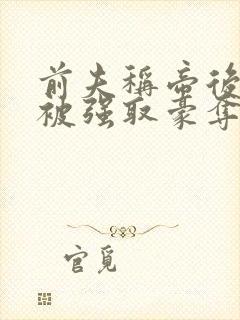 前夫稱帝後
被强取豪奪
官覓